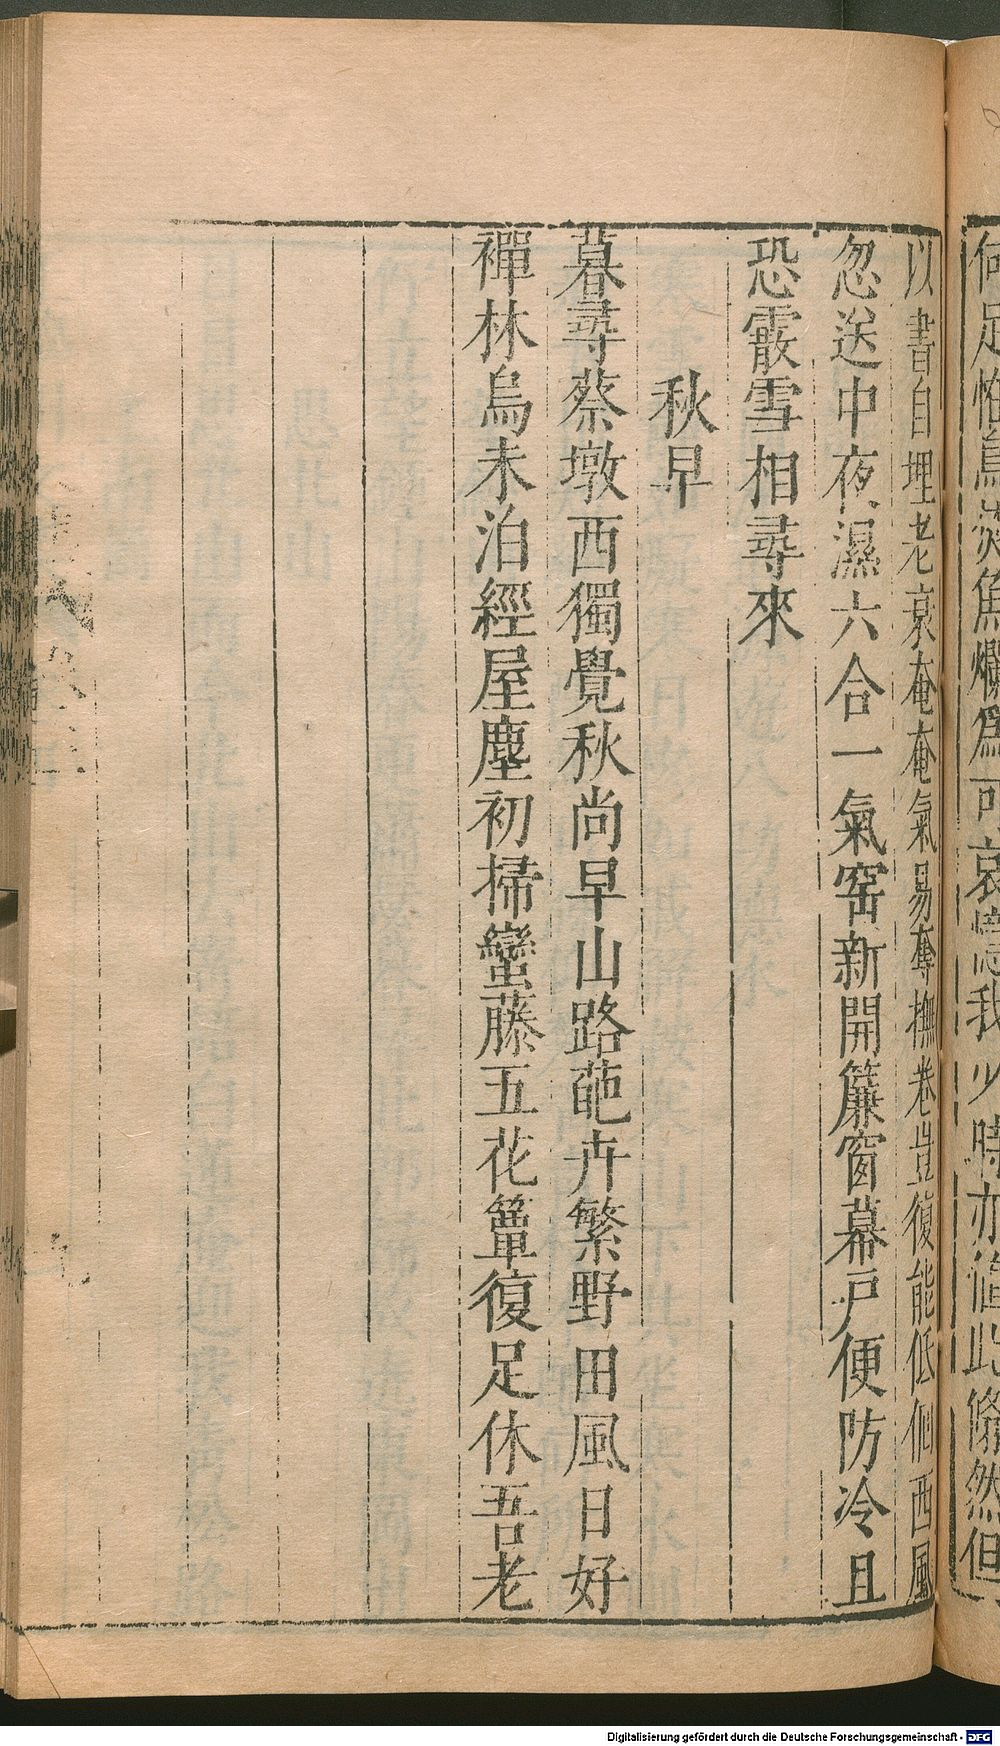 何足怪鳥焚魚爛爲可哀憶我少時亦值此翛然但
以書自埋老衰奄奄氣易奪撫卷豈復能低佪西風
忽送中夜濕六合一氣窑新開簾窗幕戸便防冷且
恐霰雪相尋來
秋早
暮尋蔡墩西獨覺秋尚早山路葩卉繁野田風日好
禪林烏未泊經屋塵初掃蠻藤五花簟復足休吾老
Digitalisierung gefördert durch die Deutsche Forschungsgemeinschaft - DFG